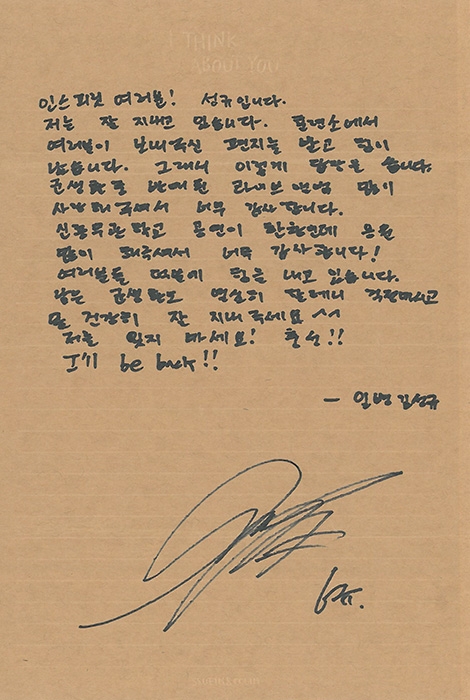 I THINK
ABOUT YOU
인스피릿 여러분! 성규입니다.
저는 잘 지내고 있습니다. 훈련소에서
여러분이 보내주신 편지를 받고 힘이
났습니다. 그래서 이렇게 답장을 씁니다.
군생활로 발매된 라이브 앨범 많이
사랑해주셔서 너무 감사합니다.
신흥무관학교 공연이 한창인데 응원
많이 해주셔서 너무 감사합니다!
여러분들 덕분에 힘을 내고 있습니다.
남은 군생활도 열심히 할테니 걱정마시고
잘 건강히 잘 지내주세요 ^^
저를 잊지 마세요! 충성!!
I'll be back!!
- 일병 김성규